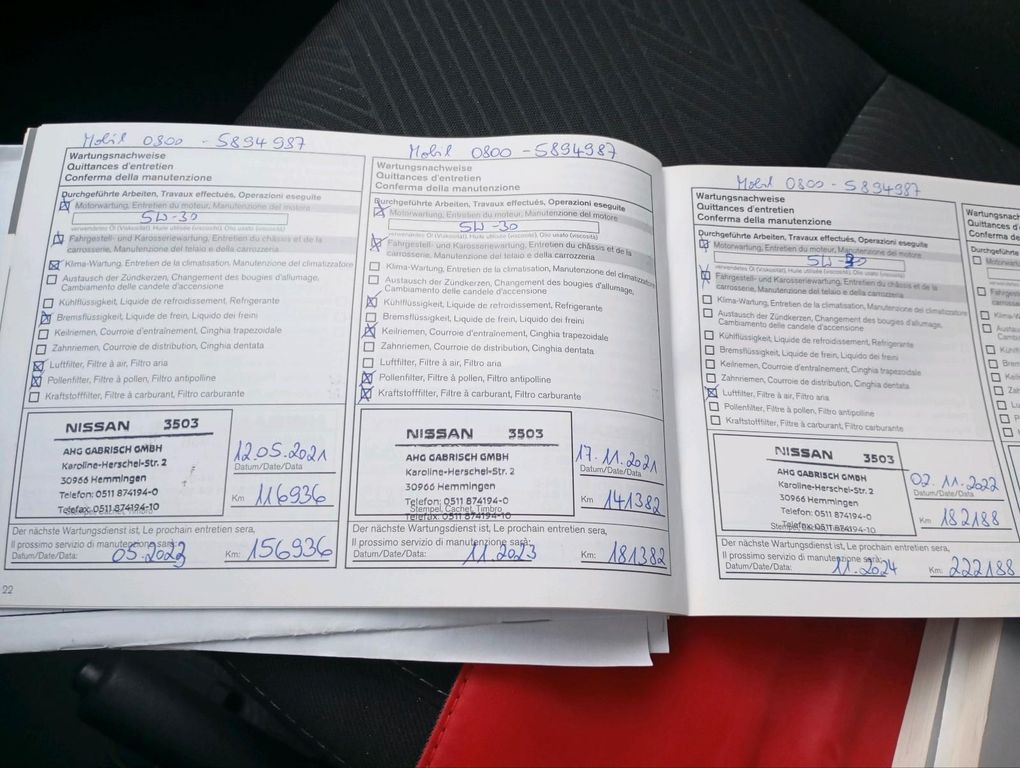 Mobil 0800 - 5894987
Wartungsnachweise
Quittances d'entretien
Conferma della manutenzione
Durchgeführte Arbeiten, Travaux effectués, Operazioni eseguite
Motorwartung, Entretien du moteur, Manutenzione del motore
5W-30
verwendetes Öl (Viskosität), Huile utilisée (viscosité), Olio usato (viscosità)
Fahrgestell- und Karosseriewartung, Entretien du châssis et de la
carrosserie, Manutenzione del telaio e della carrozzeria
Klima-Wartung, Entretien de la climatisation, Manutenzione del climatizzatore
Austausch der Zündkerzen, Changement des bougies d'allumage,
Cambiamento delle candele d'accensione
Kühlflüssigkeit, Liquide de refroidissement, Refrigerante
Bremsflüssigkeit, Liquide de frein, Liquido dei freini
Keilriemen, Courroie d'entraînement, Cinghia trapezoidale
Zahnriemen, Courroie de distribution, Cinghia dentata
Luftfilter, Filtre à air, Filtro aria
Pollenfilter, Filtre à pollen, Filtro antipolline
Kraftstofffilter, Filtre à carburant, Filtro carburante
NISSAN 3503
AHG GABRISCH GMBH
Karoline-Herschel-Str. 2
30966 Hemmingen
Telefon: 0511 874194-0
Telefax: 0511 874194-10
Stempel, Cachet, Timbro
12.05.2021
Datum/Date/Data
Km 116936
Der nächste Wartungsdienst ist, Le prochain entretien sera,
Il prossimo servizio di manutenzione sarà:
Datum/Date/Data: 05.2023 Km: 156936
22
Mobil 0800 - 5894987
Wartungsnachweise
Quittances d'entretien
Conferma della manutenzione
Durchgeführte Arbeiten, Travaux effectués, Operazioni eseguite
Motorwartung, Entretien du moteur, Manutenzione del motore
5W-30
verwendetes Öl (Viskosität), Huile utilisée (viscosité), Olio usato (viscosità)
Fahrgestell- und Karosseriewartung, Entretien du châssis et de la
carrosserie, Manutenzione del telaio e della carrozzeria
Klima-Wartung, Entretien de la climatisation, Manutenzione del climatizzatore
Austausch der Zündkerzen, Changement des bougies d'allumage,
Cambiamento delle candele d'accensione
Kühlflüssigkeit, Liquide de refroidissement, Refrigerante
Bremsflüssigkeit, Liquide de frein, Liquido dei freini
Keilriemen, Courroie d'entraînement, Cinghia trapezoidale
Zahnriemen, Courroie de distribution, Cinghia dentata
Luftfilter, Filtre à air, Filtro aria
Pollenfilter, Filtre à pollen, Filtro antipolline
Kraftstofffilter, Filtre à carburant, Filtro carburante
NISSAN 3503
AHG GABRISCH GMBH
Karoline-Herschel-Str. 2
30966 Hemmingen
Telefon: 0511 874194-0
Stempel, Cachet, Timbro
Telefax: 0511 874194-10
17.11.2021
Datum/Date/Data
Km 141382
Der nächste Wartungsdienst ist, Le prochain entretien sera,
Il prossimo servizio di manutenzione sarà:
Datum/Date/Data: 11.2023 Km: 181382
Mobil 0800 - 5894987
Wartungsnachweise
Quittances d'entretien
Conferma della manutenzione
Durchgeführte Arbeiten, Travaux effectués, Operazioni eseguite
Motorwartung, Entretien du moteur, Manutenzione del motore
5W-30
verwendetes Öl (Viskosität), Huile utilisée (viscosité), Olio usato (viscosità)
Fahrgestell- und Karosseriewartung, Entretien du châssis et de la
carrosserie, Manutenzione del telaio e della carrozzeria
Klima-Wartung, Entretien de la climatisation, Manutenzione del climatizzatore
Austausch der Zündkerzen, Changement des bougies d'allumage,
Cambiamento delle candele d'accensione
Kühlflüssigkeit, Liquide de refroidissement, Refrigerante
Bremsflüssigkeit, Liquide de frein, Liquido dei freini
Keilriemen, Courroie d'entraînement, Cinghia trapezoidale
Zahnriemen, Courroie de distribution, Cinghia dentata
Luftfilter, Filtre à air, Filtro aria
Pollenfilter, Filtre à pollen, Filtro antipolline
Kraftstofffilter, Filtre à carburant, Filtro carburante
NISSAN 3503
AHG GABRISCH GMBH
Karoline-Herschel-Str. 2
30966 Hemmingen
Telefon: 0511 874194-0
Telefax: 0511 874194-10
02.11.2022
Datum/Date/Data
Km 182188
Der nächste Wartungsdienst ist, Le prochain entretien sera,
Il prossimo servizio di manutenzione sarà:
Datum/Date/Data: 11.2024 Km: 222188
Wartungsnach
Quittances d
Conferma de